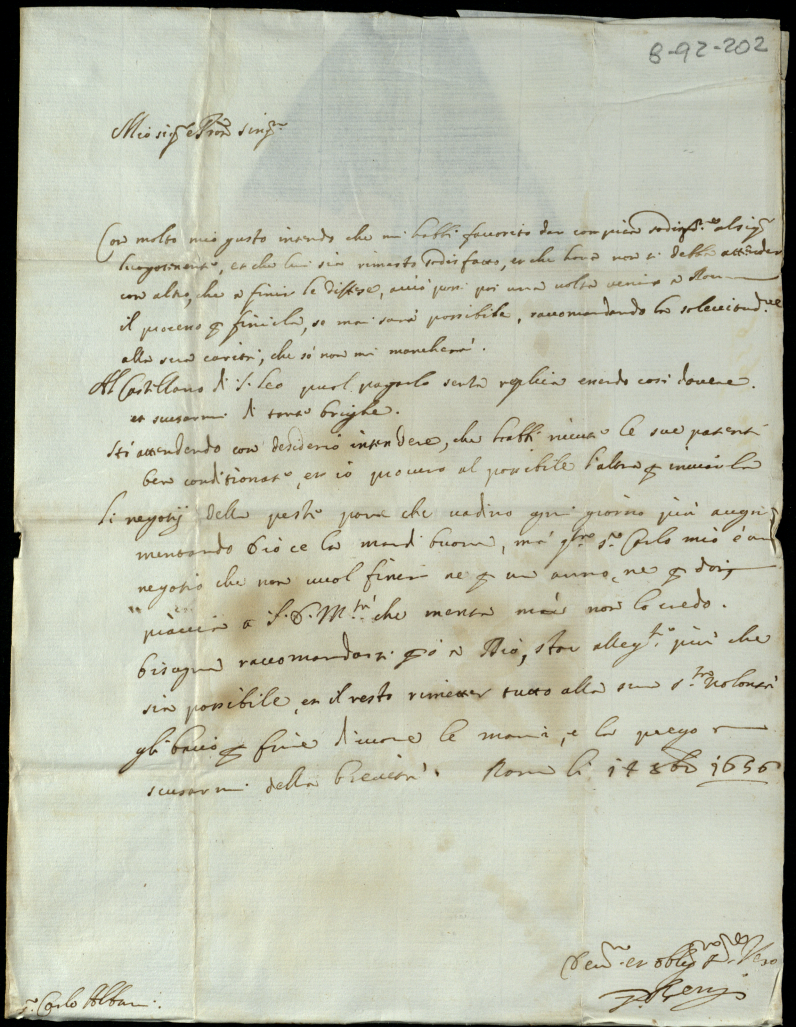 8-92-202
Mio sig.re e Pron sing.mo
Con molto mio gusto intendo che mi habbi favorito dar compita sodisf.ne al sig.
luogotenente, et che lui sia rimasto sodisfatto, et che hora non si debba attender
con altro, che a finir le diffese, acciò possi poi una volta venire a Roma
il processo p finirla, se mai sarà possibile, racomandando la solecitud.ne
alla sua carità, che so non mi mancherà.
Al Castellano di S. Leo puol pagarlo senza replica essendo così dovere.
et scusarmi di tante brighe.
Stò attendendo con desiderio intendere, che habbi ricevuto le sue patenti
ben conditionate, et io procuro al possibile l'altra p inviarla
Li negotij della peste pare che vadino ogni giorno più augu
mentando Dio ce la mandi buona, mà s.r Carlo mio è un
negotio che non vuol finir ne p un anno, ne p doi,
piaccia a S. D. M.tà che menta mà non lo credo.
bisogna raccomandarsi p ò a Dio, star alleg.te più che
sia possibile, et il resto rimetter tutto alla sua s.ta Volontà
gli bacio p fine di cuore le mani, e la prego
scusarmi della brevità. Roma li 14 8bre 1656
Dev.mo et oblig.mo Ser. Vero
s.r Carlo Albani.